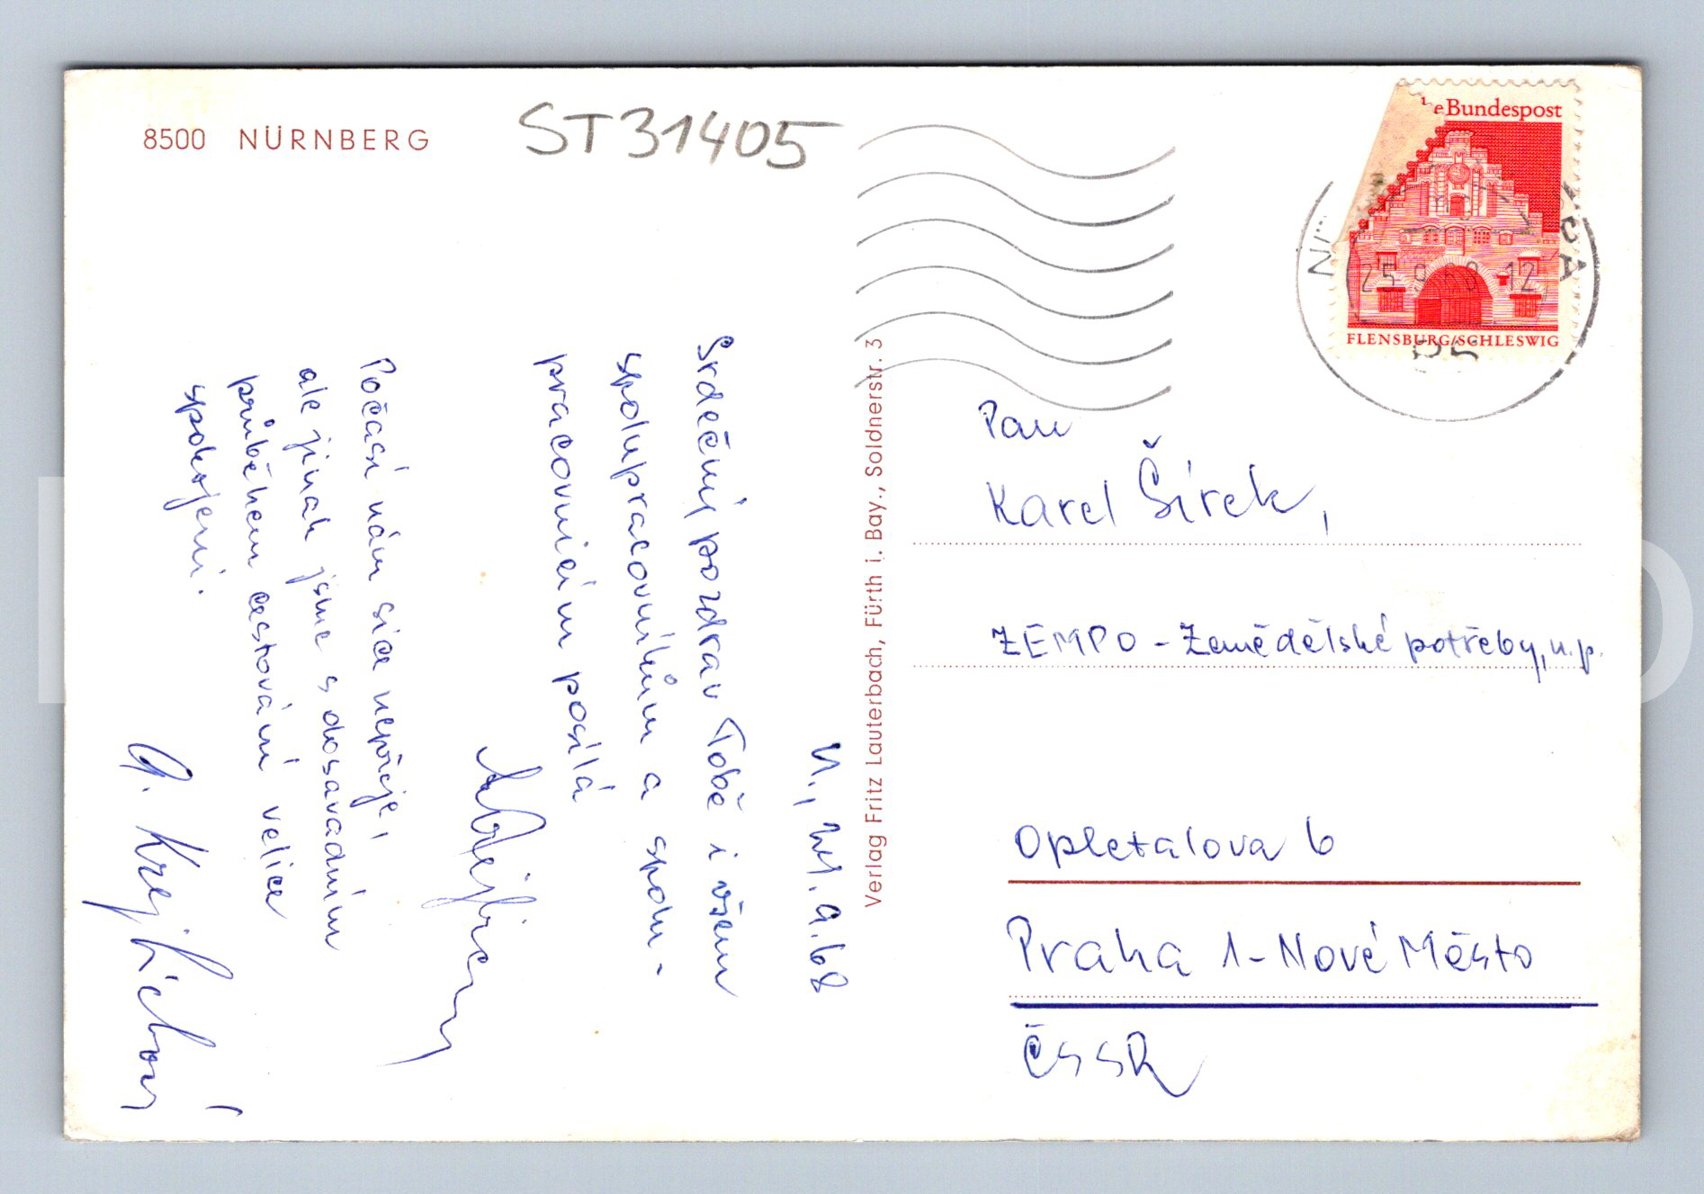 8500 NÜRNBERG
ST31405
N., 24.9.68
Srdečný pozdrav Tobě i všem
spolupracovníkům a spolu-
pracovnicím posílá
Počasí nám sice nepřeje,
ale jinak jsme s dosavadním
průběhem cestování velice
spokojeni.
Verlag Fritz Lauterbach, Fürth i. Bay., Soldnerstr. 3
eBundespost
FLENSBURG/SCHLESWIG
25.9.68 12
Pan
Karel Šírek,
ZEMPO - Zemědělské potřeby, n.p.
Opletalova 6
Praha 1-Nové Město
ČSSR